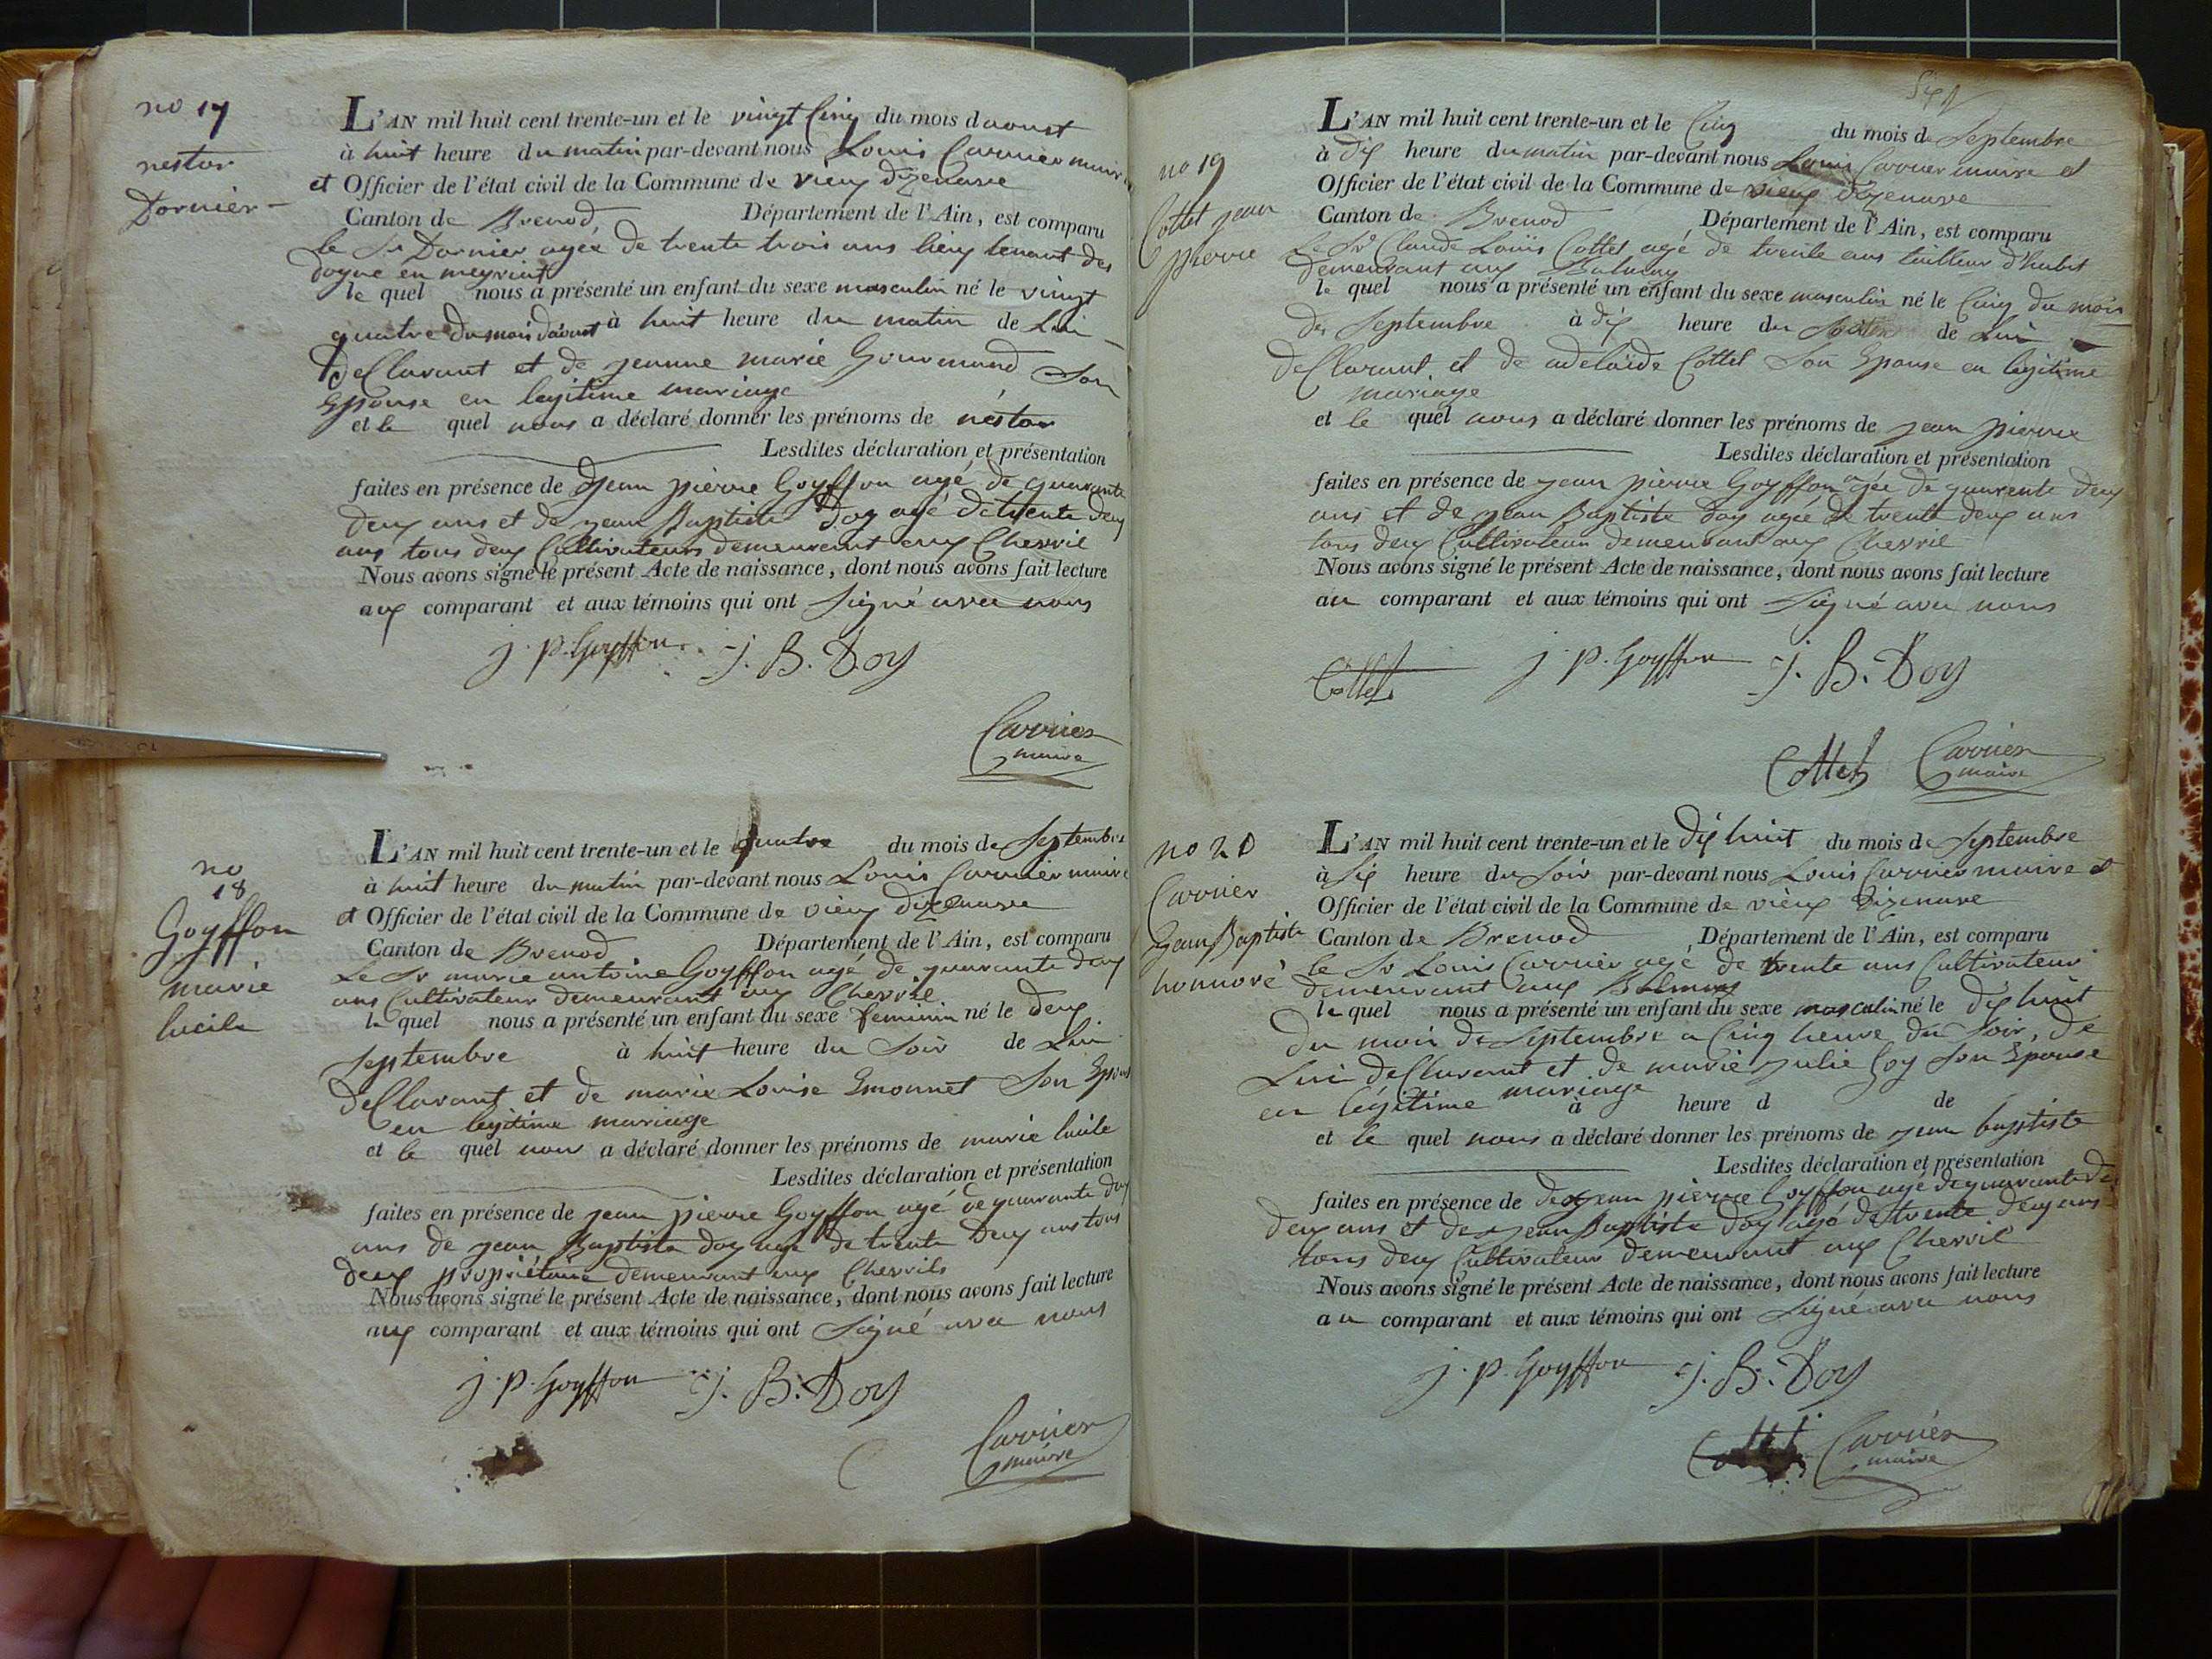 no 17
nestor
Dornier
L'AN mil huit cent trente-un et le vingt Cinq du mois daoust
à huit heure du matin par-devant nous Louis Carrier maire
et Officier de l'état civil de la Commune de vieux dizenave
Canton de Brenod Département de l'Ain, est comparu
le Sr Dornier agée de trente trois ans lieutenant des
doyne en meyriat
le quel nous a présenté un enfant du sexe masculin né le vingt
quatre du mois daoust à huit heure du matin de Lui
deClarant et de jeanne marie Gourmand Son
Epouse en legitime mariage
et le quel nous a déclaré donner les prénoms de néstor
Lesdites déclaration et présentation
faites en présence de Djean pierre Goyffon agé de quarante
deux ans et de jean Baptiste Doy agé de trente deux
ans tous deux Cultivateurs demeurant aux Chevril
Nous avons signé le présent Acte de naissance, dont nous avons fait lecture
aux comparant et aux témoins qui ont Signé avec nous
j. P. Goyffon j. B. Doy
Carrier
maire
no
18
Goyffon
marie
lucile
L'AN mil huit cent trente-un et le quatre du mois de Septembre
à huit heure du matin par-devant nous Louis Carrier maire
et Officier de l'état civil de la Commune de vieux dizenave
Canton de Brenod Département de l'Ain, est comparu
Le Sr marie antoine Goyffon agé de quarante deux
ans Cultivateur demeurant aux Chevril
le quel nous a présenté un enfant du sexe feminin né le deux
Septembre à huit heure du Soir de Lui
deClarant et de marie Louise Emonnet Son Epouse
en legitime mariage
et le quel nous a déclaré donner les prénoms de marie lucile
Lesdites déclaration et présentation
faites en présence de jean pierre Goyffon agé de quarante deux
ans de jean Baptiste doy age de trente deux ans tous
deux propriétaire demeurant aux Chevrils
Nous avons signé le présent Acte de naissance, dont nous avons fait lecture
aux comparant et aux témoins qui ont Signé avec nous
j. P. Goyffon j. B. Doy
Carrier
maire
no 19
Cottet jean
pierre
L'AN mil huit cent trente-un et le Cinq du mois de Septembre
à dix heure du matin par-devant nous Louis Carrier maire et
Officier de l'état civil de la Commune de vieux dizenave
Canton de Brenod Département de l'Ain, est comparu
Le Sr Claude Louis Cottet agé de trente ans tailleur d'habit
demeurant aux Balmay
le quel nous a présenté un enfant du sexe masculin né le Cinq du mois
de Septembre à dix heure du de Lui
deClarant et de adelaïde Cottet Son Epouse en legitime
mariage
et le quel nous a déclaré donner les prénoms de jean pierre
Lesdites déclaration et présentation
faites en présence de jean pierre Goyffon agée de quarente deux
ans et de jean Baptiste doy agée de trente deux ans
tous deux Cultivateur demeurant aux Chevril
Nous avons signé le présent Acte de naissance, dont nous avons fait lecture
au comparant et aux témoins qui ont Signé avec nous
Cottet j. P. Goyffon j. B. Doy
Cottet Carrier
maire
no 20
Carrier
Jean Baptiste
honnoré
L'AN mil huit cent trente-un et le dix huit du mois de Septembre
à Six heure du Soir par-devant nous Louis Carrier maire et
Officier de l'état civil de la Commune de vieux dizenave
Canton de Brenod Département de l'Ain, est comparu
le Sr Louis Carrier agé de trente ans Cultivateur
demeurant aux Balmay
le quel nous a présenté un enfant du sexe masculin né le dix huit
du mois de Septembre a Cinq heure du Soir, de
Lui deClarant et de marie julie Goy Son Epouse
en légitime mariage à heure d de
et le quel nous a déclaré donner les prénoms de jean baptiste
Lesdites déclaration et présentation
faites en présence de de jean pierre Goyffon agé de quarante
deux ans et de jean Baptiste doy agé de trente deux ans
tous deux Cultivateur demeurant aux Chevril
Nous avons signé le présent Acte de naissance, dont nous avons fait lecture
au comparant et aux témoins qui ont Signé avec nous
j. P. Goyffon j. B. Doy
Cottet Carrier
maire